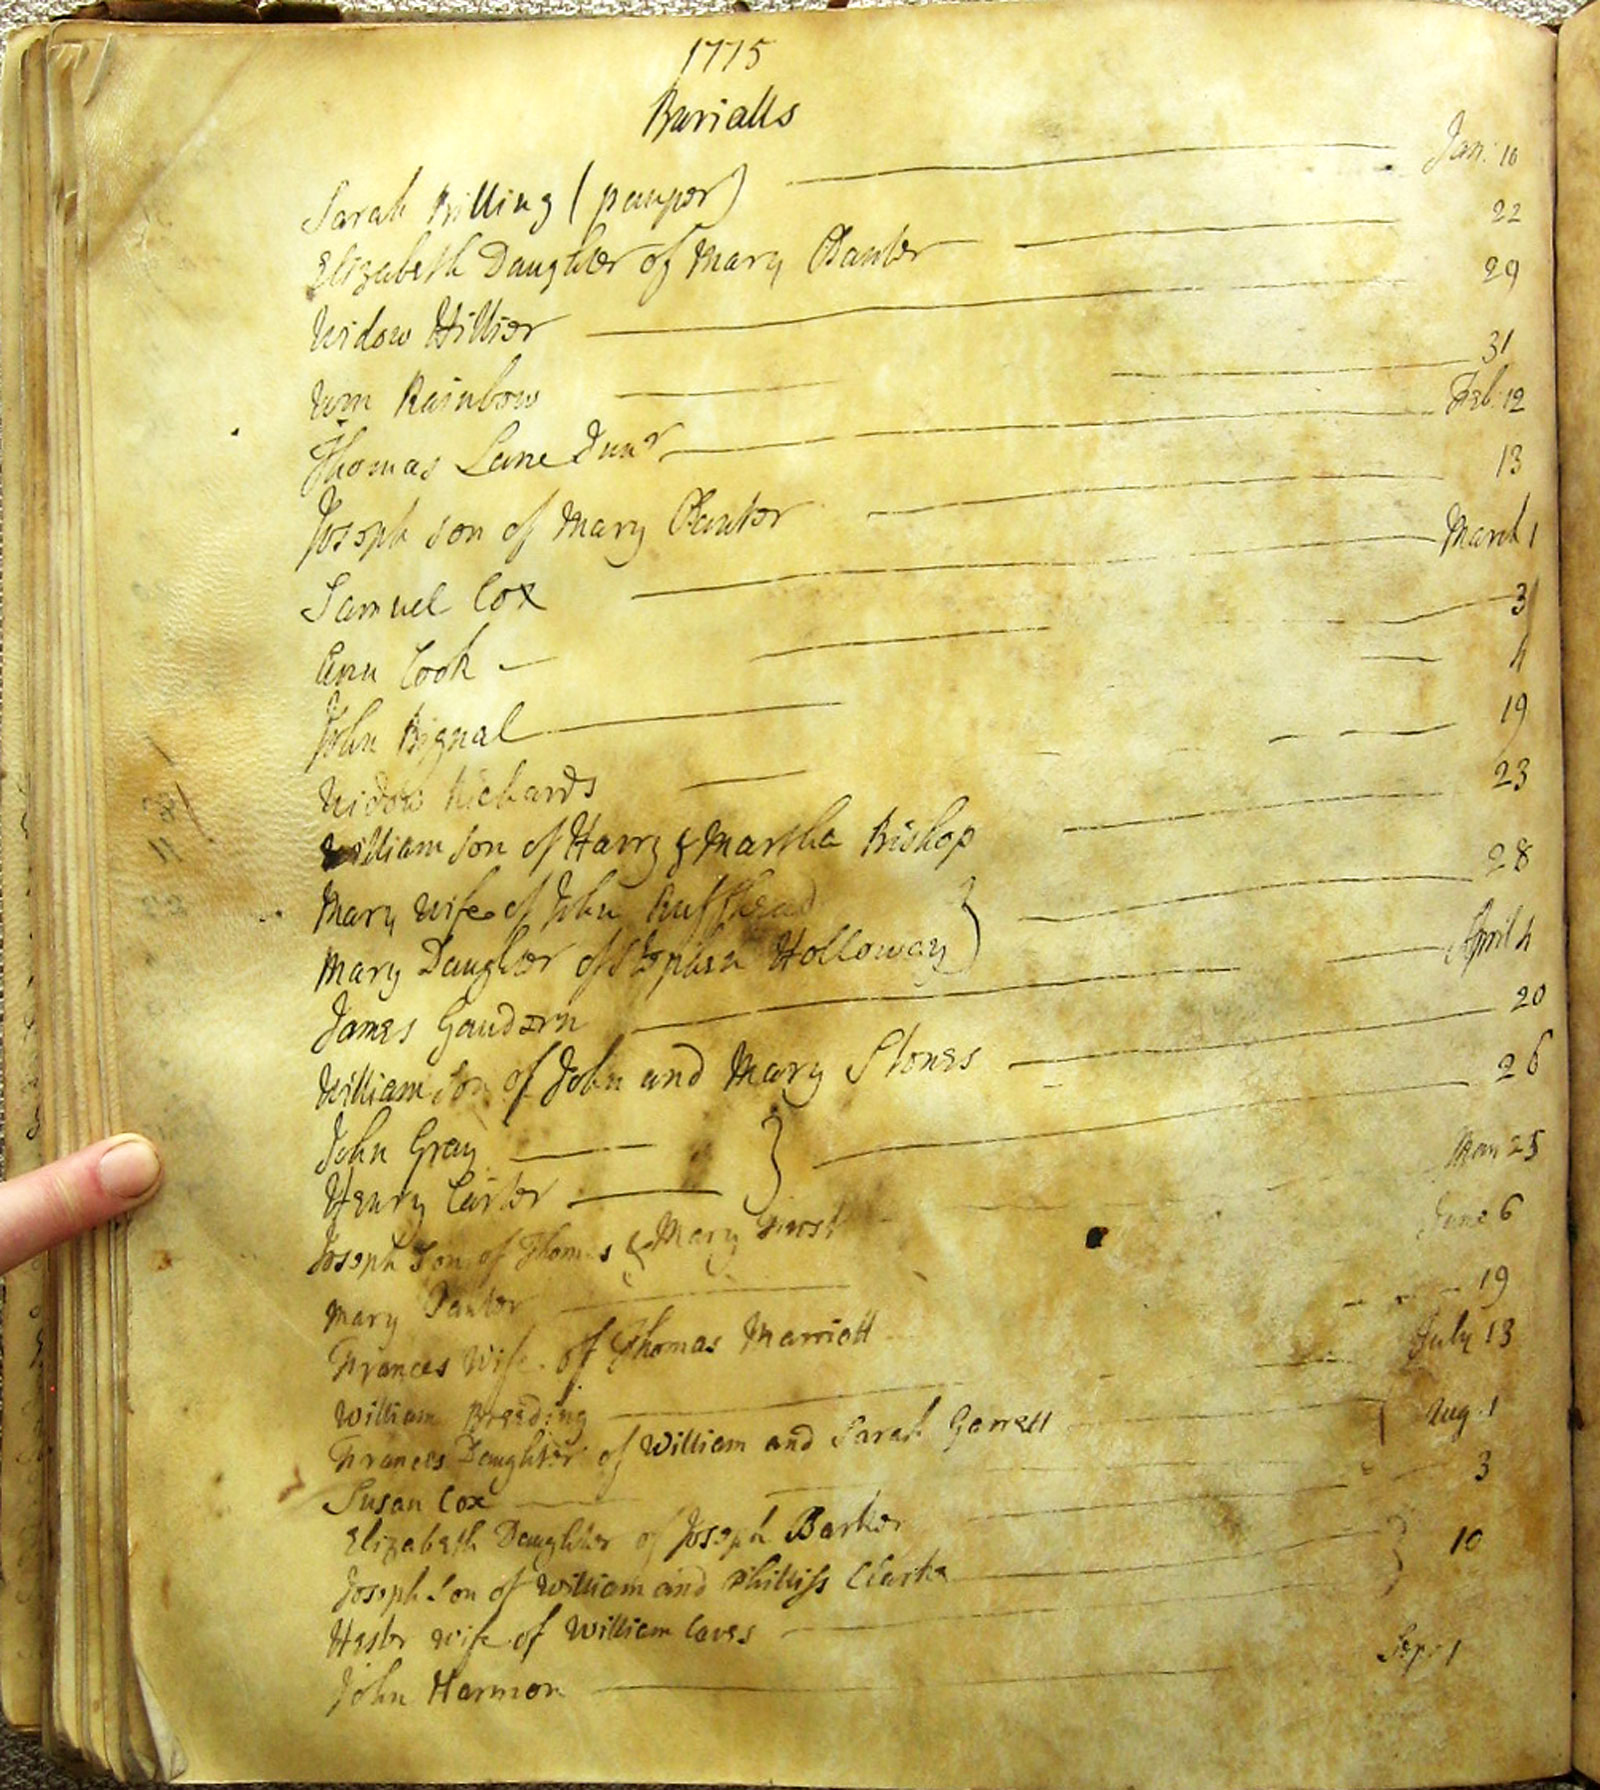 1775
Burialls
Sarah Billing (pauper) Jan: 10
Elizabeth Daughter of Mary Panter 22
Widow Hillier 29
Wm Rainbow 31
Thomas Lane Junr Feb: 12
Joseph son of Mary Panter 13
Samuel Cox March 1
Ann Cook 3
John Bignal 4
Widow Richards 19
William son of Harry & Martha Bishop 23
Mary wife of John Ruffhead
Mary Daughter of Stephen Holloway 28
James Gaudern April 4
William Son of John and Mary Stones 20
John Gray
Henry Carter 26
Joseph Son of Thomas & Mary May 25
Mary Panter June 6
Frances Wife of Thomas Marriott 19
William Breeding July 13
Frances Daughter of William and Sarah Garrett
Susan Cox Aug: 1
Elizabeth Daughter of Joseph Barker 3
Joseph Son of William and Phillifs Clarke
Hester wife of William Caves 10
John Harmon Sep: 1